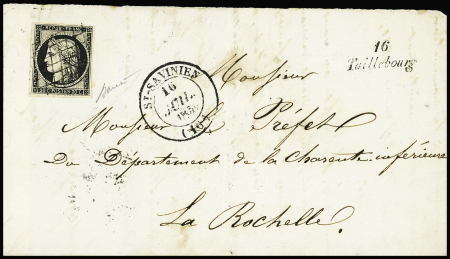 REPUB. FRANC.
16
Taillebourg
ST-SAVINIEN
16
JUIL.
1850
(16)
Monsieur
Monsieur le Préfet
Du Département de la Charente inférieure
La Rochelle.